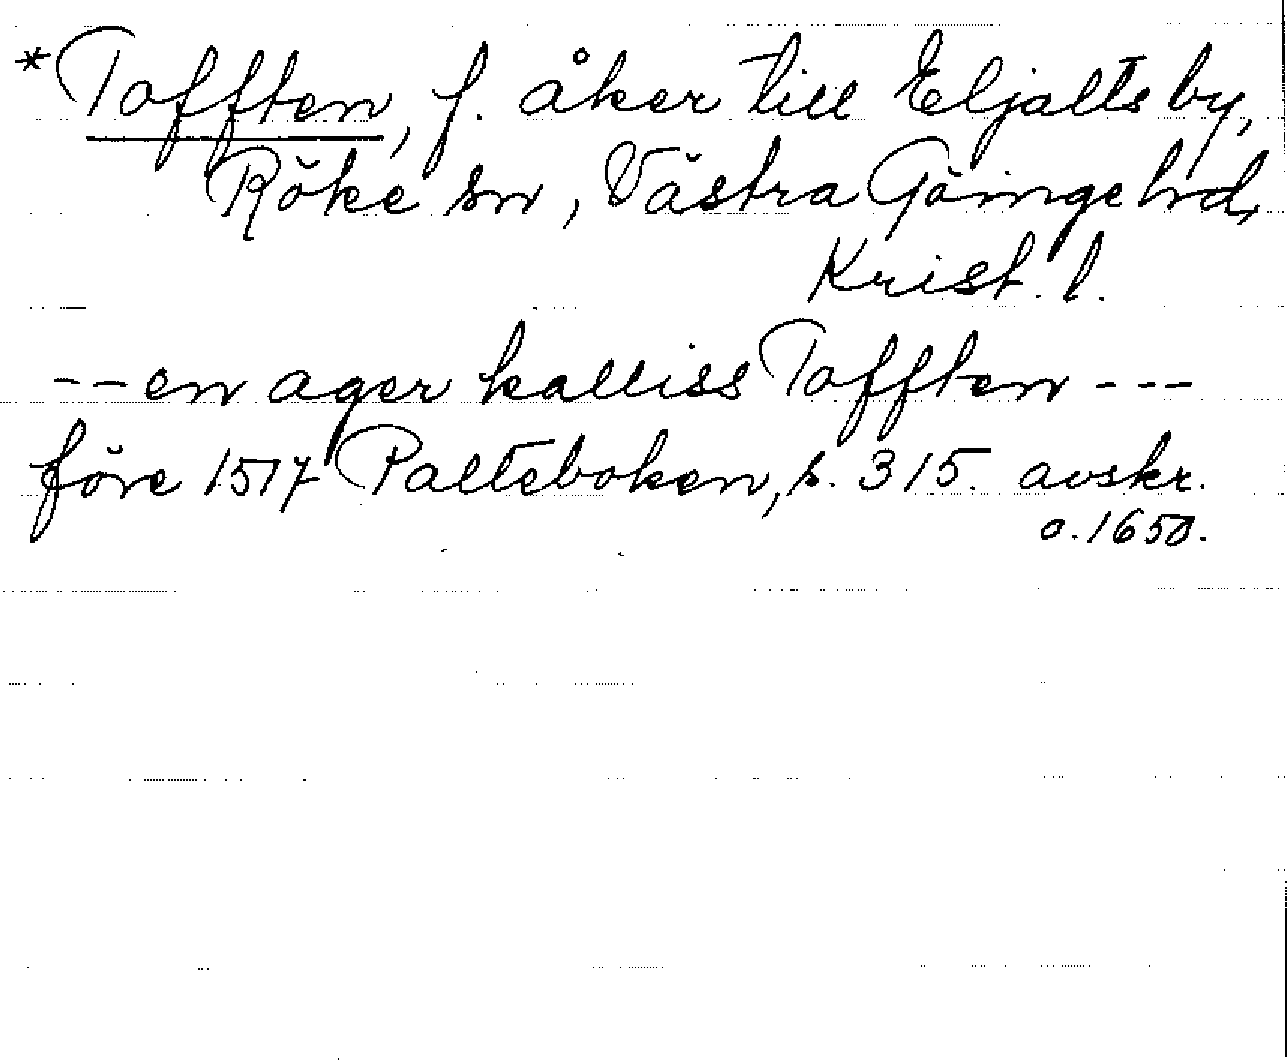 *Tofften, f. åker till Eljalts by,
Röke sn, Västra Göinge hd,
Krist. l.
--en ager kalliss Tofften ---
före 1517 Palteboken, s. 315. avskr.
o. 1650.